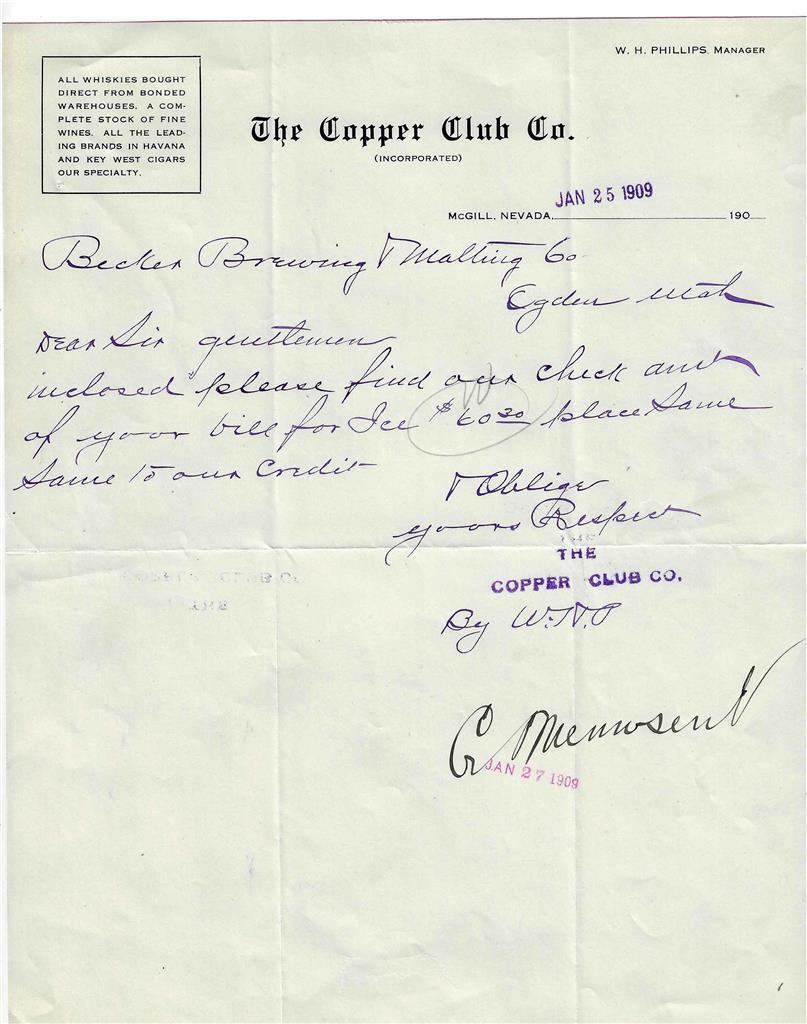 W. H. PHILLIPS, MANAGER
ALL WHISKIES BOUGHT
DIRECT FROM BONDED
WAREHOUSES. A COM-
PLETE STOCK OF FINE
WINES. ALL THE LEAD-
ING BRANDS IN HAVANA
AND KEY WEST CIGARS
OUR SPECIALTY.
The Copper Club Co.
(INCORPORATED)
JAN 25 1909
MCGILL, NEVADA, 190
Becker Brewing & Malting Co
Ogden Utah
Dear Sir gentlemen
inclosed please find our check amt
of your bill for Ice $60 30 place Same
Same to our Credit
& Oblige
yours Respect
THE
COPPER CLUB CO.
By W.H.P
JAN 27 1909